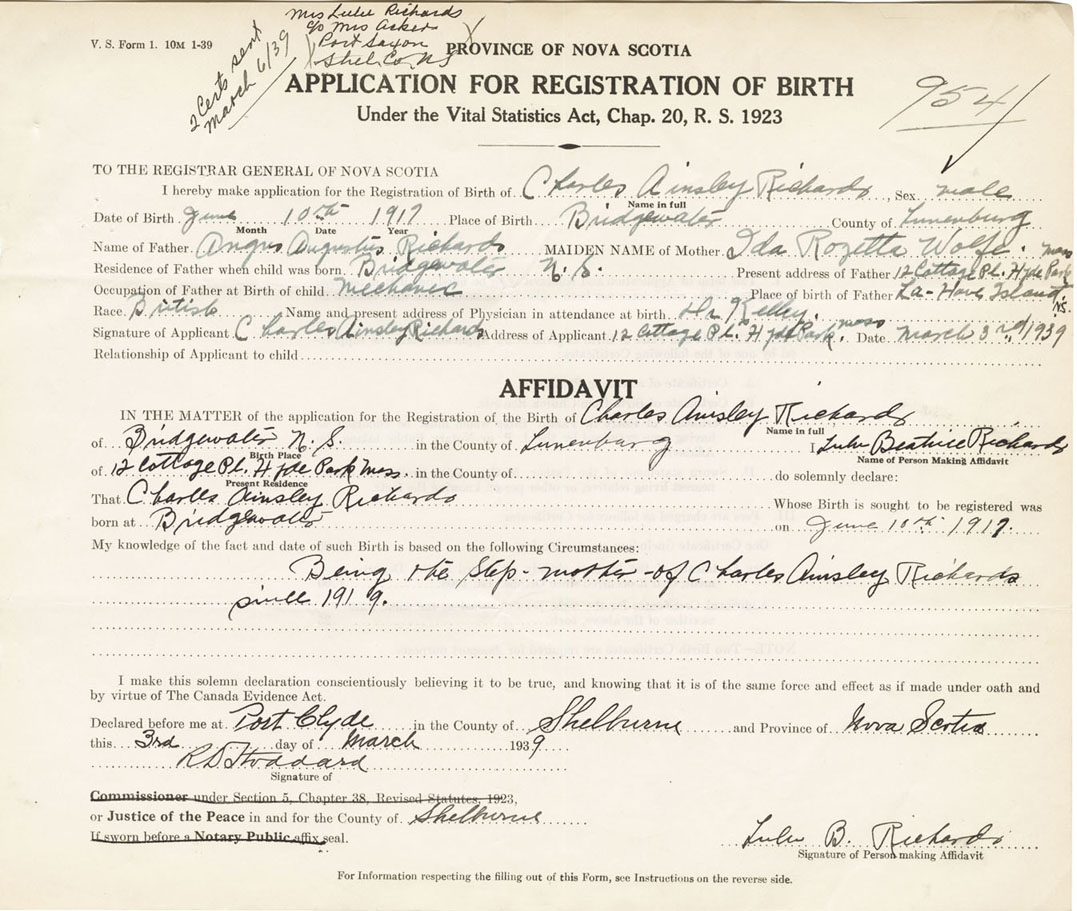 Mrs Lulu Richards
c/o Mrs Acker
Port Saxon
Shel. Co. NS
2 Certs sent
March 6/39
V. S. Form 1. 10M 1-39
PROVINCE OF NOVA SCOTIA
APPLICATION FOR REGISTRATION OF BIRTH
Under the Vital Statistics Act, Chap. 20, R. S. 1923
954
TO THE REGISTRAR GENERAL OF NOVA SCOTIA
I hereby make application for the Registration of Birth of Charles Ainsley Richards, Sex male
Name in full
Date of Birth June 10th 1917 Place of Birth Bridgewater County of Lunenburg
Month Date Year
Name of Father Angus Augustus Richards MAIDEN NAME of Mother Ida Rozetta Wolfe.
Residence of Father when child was born Bridgewater N.S. Present address of Father 12 Cottage Pl. Hyde Park Mass
Occupation of Father at Birth of child Mechanic Place of birth of Father La-Have Island NS.
Race British Name and present address of Physician in attendance at birth Dr Kelley.
Signature of Applicant Charles Ainsley Richards Address of Applicant 12 Cottage Pl. Hyde Park. Mass Date March 3rd, 1939
Relationship of Applicant to child
AFFIDAVIT
IN THE MATTER of the application for the Registration of the Birth of Charles Ainsley Richards
Name in full
of Bridgewater N.S. in the County of Lunenburg I Lulu Beatrice Richards
Birth Place Name of Person Making Affidavit
of 12 Cottage Pl. Hyde Park Mass. in the County of do solemnly declare:
Present Residence
That Charles Ainsley Richards Whose Birth is sought to be registered was
born at Bridgewater on June 10th 1917.
My knowledge of the fact and date of such Birth is based on the following Circumstances:
Being the Step-mother of Charles Ainsley Richards
since 1919.
I make this solemn declaration conscientiously believing it to be true, and knowing that it is of the same force and effect as if made under oath and
by virtue of The Canada Evidence Act.
Declared before me at Port Clyde in the County of Shelburne and Province of Nova Scotia
this 3rd day of March 1939
R D Stoddard
Signature of
Commissioner under Section 5, Chapter 38, Revised Statutes, 1923,
or Justice of the Peace in and for the County of Shelburne
If sworn before a Notary Public affix seal.
Lulu B. Richards
Signature of Person making Affidavit
For Information respecting the filling out of this Form, see Instructions on the reverse side.